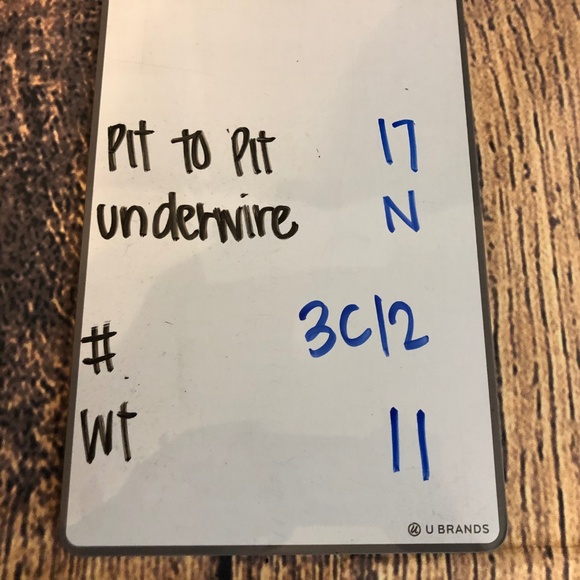 Pit to Pit 17
underwire N
# 3C12
Wt 11
U BRANDS